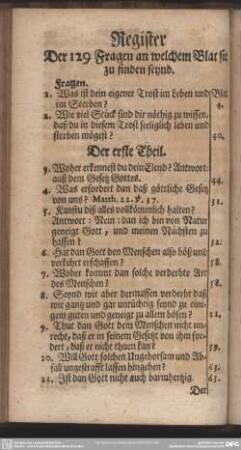 Register
Der 129 Fragen an welchem Blat sie
zu finden seynd.
Fragen.
1. Was ist dein eigener Trost im Leben und Blat
im Sterben? 4.
2. Wie viel Stück sind dir nöthig zu wissen,
daß du in diesem Trost seeliglich leben und
sterben mögest? 40.
Der erste Theil.
3. Woher erkennest du dein Elend? Antwort:
auß dem Gesetz Gottes. 44.
4. Was erfordert dan daß göttliche Gesetz
von uns? Matth. 22. V. 37. 51.
5. Kanstu diß alles vollkömmlich halten?
Antwort: Nein: dan ich bin von Natur
geneigt Gott, und meinen Nächsten zu
hassen? 52.
6. Hat dan Gott den Menschen also böß und
verkehrt erschaffen? 58.
7. Woher kommt dan solche verderbte Art
des Menschen? 58.
8. Seynd wir aber dermassen verderbt daß
wir gantz und gar untüchtig seynd zu eini-
gem guten und geneigt zu allem bösen? 11.
9. Thut dan Gott dem Menschen nicht un-
recht, daß er in seinem Gesetz von ihm for-
dert, daß er nicht thuen kan? 59.
10. Will Gott solchen Ungehorsam und Ab-
fall ungestrafft lassen hingehen? 63.
11. Ist dan Gott nicht auch barmhertzig. 65.
Der